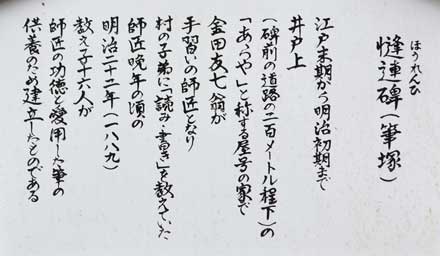 ほうれんひ
縫連碑（筆塚）
江戸末期から明治初期まで
井戸上
（碑前の道路の二百メートル程下）の
「あらや」と称する屋号の家で
金田友七翁が
手習いの師匠となり
村の子弟に「読み・書き」を教えていた
師匠晩年の頃の
明治二十二年（一八八九）
教え子十六人が
師匠の功徳と愛用した筆の
供養のため建立したものである